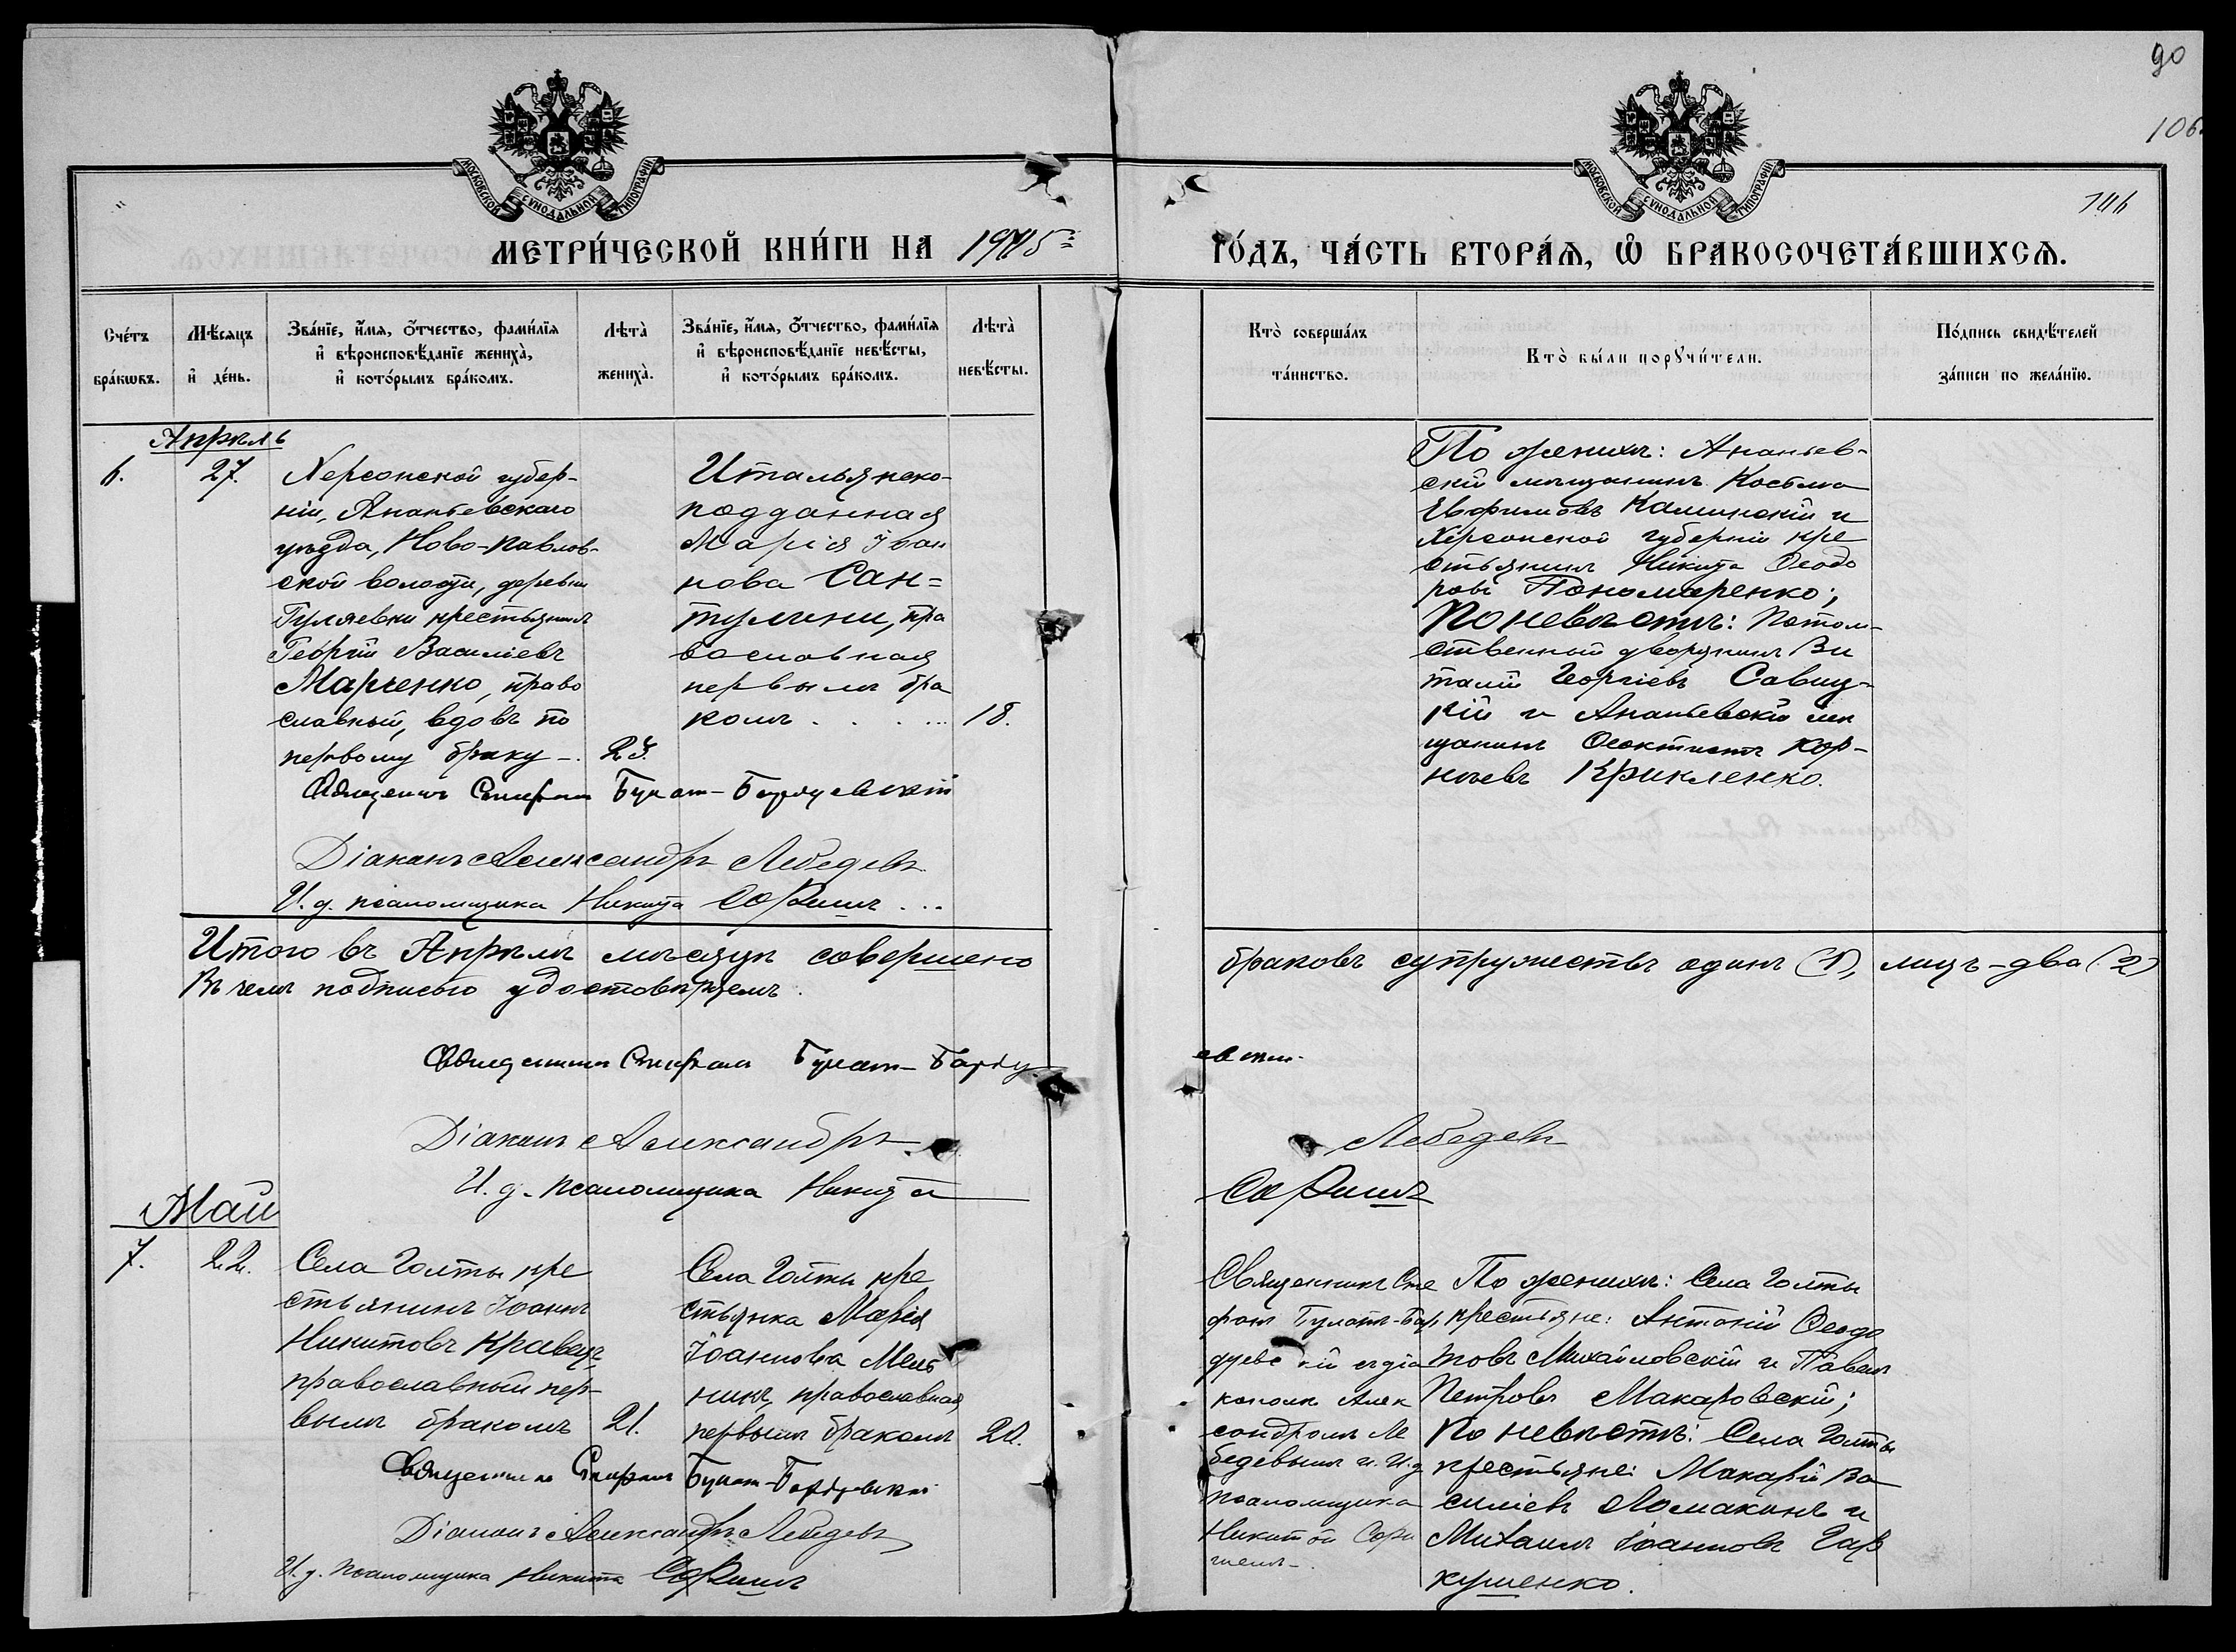 90
106
146
МОСКОВСКОЙ СѴНОДАЛЬНОЙ ТИПОГРАФІИ
МОСКОВСКОЙ СѴНОДАЛЬНОЙ ТИПОГРАФІИ
МЕТРИ́ЧЕСКОЙ КНИ́ГИ НА 1915
ГО́ДЪ, ЧА́СТЬ ВТОРА́Ѧ, Ѽ БРАКОСОЧЕТА́ВШИХСѦ.
Сче́тъ бра́кѡвъ.
Мѣ́сяцъ и҆ де́нь.
Зва́нїе, и҆́мя, ѻ҆́тчество, фами́лїя
и҆ вѣроисповѣ́данїе женихà,
и҆ кото́рымъ бра́комъ.
Лѣтà женихà.
Зва́нїе, и҆́мя, ѻ҆́тчество, фами́лїя
и҆ вѣроисповѣ́данїе невѣ́сты,
и҆ кото́рымъ бра́комъ.
Лѣтà невѣ́сты.
Ктò соверша́лъ та́инство.
Ктò бы́ли порꙋчи́тели.
По́дпись свидѣ́телей за́писи по жела́нїю.
Апрѣль
6.
27.
Херсонской губер-
ніи, Ананьевскаго
уѣзда, Ново-Павлов-
ской волости, деревни
Гуляевки крестьянинъ
Георгій Василіевъ
Марченко, право
славный, вдовъ по
первому браку -.
23.
Итальянско-
подданная
Марія Іоан
нова Сан=
тулини, пра
вославная
первымъ бра
комъ . . . ...
18.
По женихѣ: Ананьев-
скій мѣщанинъ Косьма
Евфимовъ Каминскій и
Херсонской губерніи кре
стьянинъ Никита Ѳеодо
ровъ Пономаренко;
По невѣстѣ: Потом-
ственный дворянинъ Ви
талій Георгіевъ Савиц-
кій и Ананьевскій мѣ
щанинъ Ѳеоктистъ Кор-
нѣевъ Крикленко.
Священникъ Стефанъ Булат-Бардуевскій
Діаконъ Александръ Лебедевъ
И. д. псаломщика Никита Соришъ ...
Итого въ Апрѣлѣ мѣсяцѣ совершено браковъ супружествъ одинъ (1), лицъ-два (2)
Въ чемъ подписью удостовѣряемъ.
Священникъ Стефанъ Булат-Бардуевскій
Діаконъ Александръ Лебедевъ
И. д. псаломщика Никита Соришъ
Май
7.
22.
Села Голты кре
стьянинъ Іоаннъ
Никитовъ Кравецъ
православный пер-
вымъ бракомъ
21.
Села Голты кре
стьянка Марія
Іоаннова Мель
никъ, православная,
первымъ бракомъ
20.
Священникъ Сте
фанъ Булатъ-Бар
дуевскій съ діа
кономъ Алек
сандромъ Ле
бедевымъ и И.д
псаломщика
Никитой Сори
шемъ-
По женихѣ: Села Голты
крестьяне: Антоній Ѳеодо
товъ Михайловскій и Павелъ
Петровъ Макаровскій;
По невѣстѣ: Села Голты
крестьяне: Макарій Ва
силіевъ Ломакинъ и
Михаилъ Іоанновъ Гар
кушенко.
Священникъ Стефанъ Булат-Бардуевскій
Діаконъ Александръ Лебедевъ
И. д. псаломщика Никита Соришъ